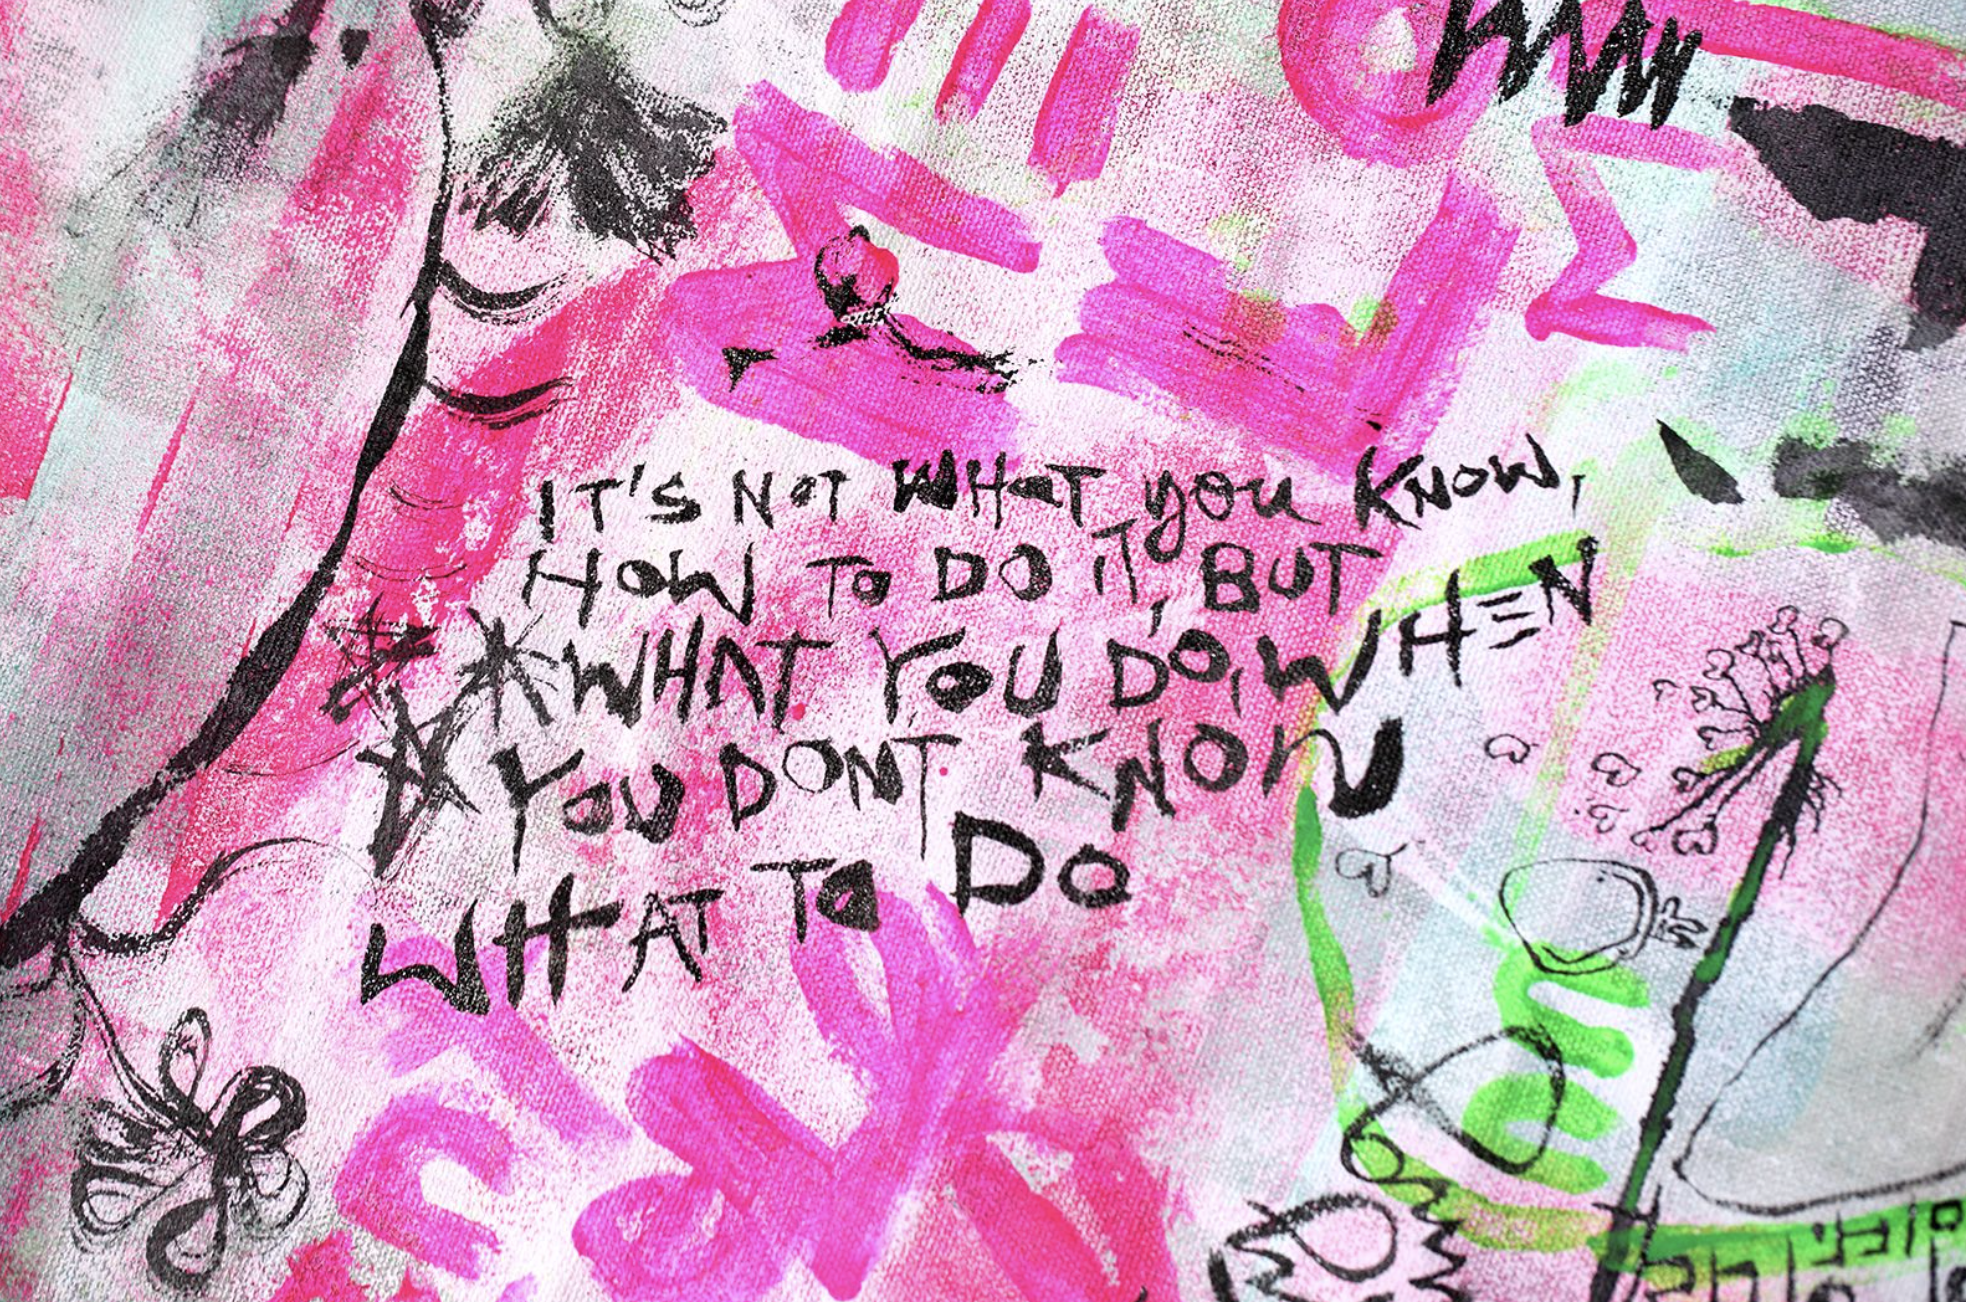 IT'S NOT WHAT you KNOW,
HOW TO DO IT, BUT
WHAT YOU DO, WHEN
YOU DONT KNOW
WHAT TO DO